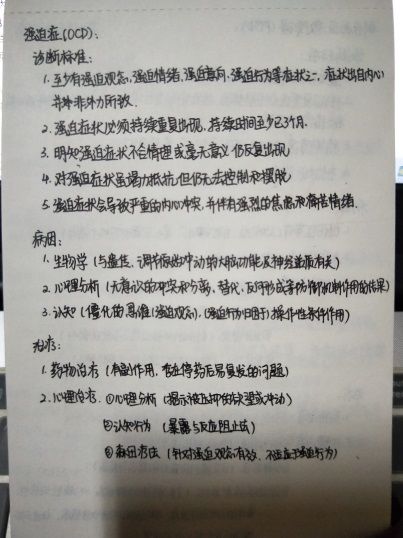 强迫症(OCD):
诊断标准:
1. 至少有强迫观念、强迫情绪、强迫意向、强迫行为等症状之一, 症状出自内心
并非外力所致.
2. 强迫症状必须持续重复出现, 持续时间至少已3个月.
3. 明知强迫症状不合情理或毫无意义仍反复出现
4. 对强迫症状虽竭力抵抗, 但仍无法控制和摆脱
5. 强迫症状会导致严重的内心冲突, 并伴有强烈的焦虑和痛苦情绪.
病因:
1. 生物学 (与遗传、调节原始冲动的大脑功能及神经递质有关)
2. 心理分析 (无意识的冲突和分离、替代、反向形成等防御机制作用的结果)
3. 认知 (僵化的思维(强迫观念), (强迫行为归因于) 操作性条件作用)
治疗:
1. 药物治疗 (有副作用, 存在停药后易复发的问题)
2. 心理治疗: ①心理分析 (揭示被压抑的欲望或冲动)
②认知行为 (暴露与反应阻止法)
③森田疗法 (针对强迫观念有效, 不适应于强迫行为)